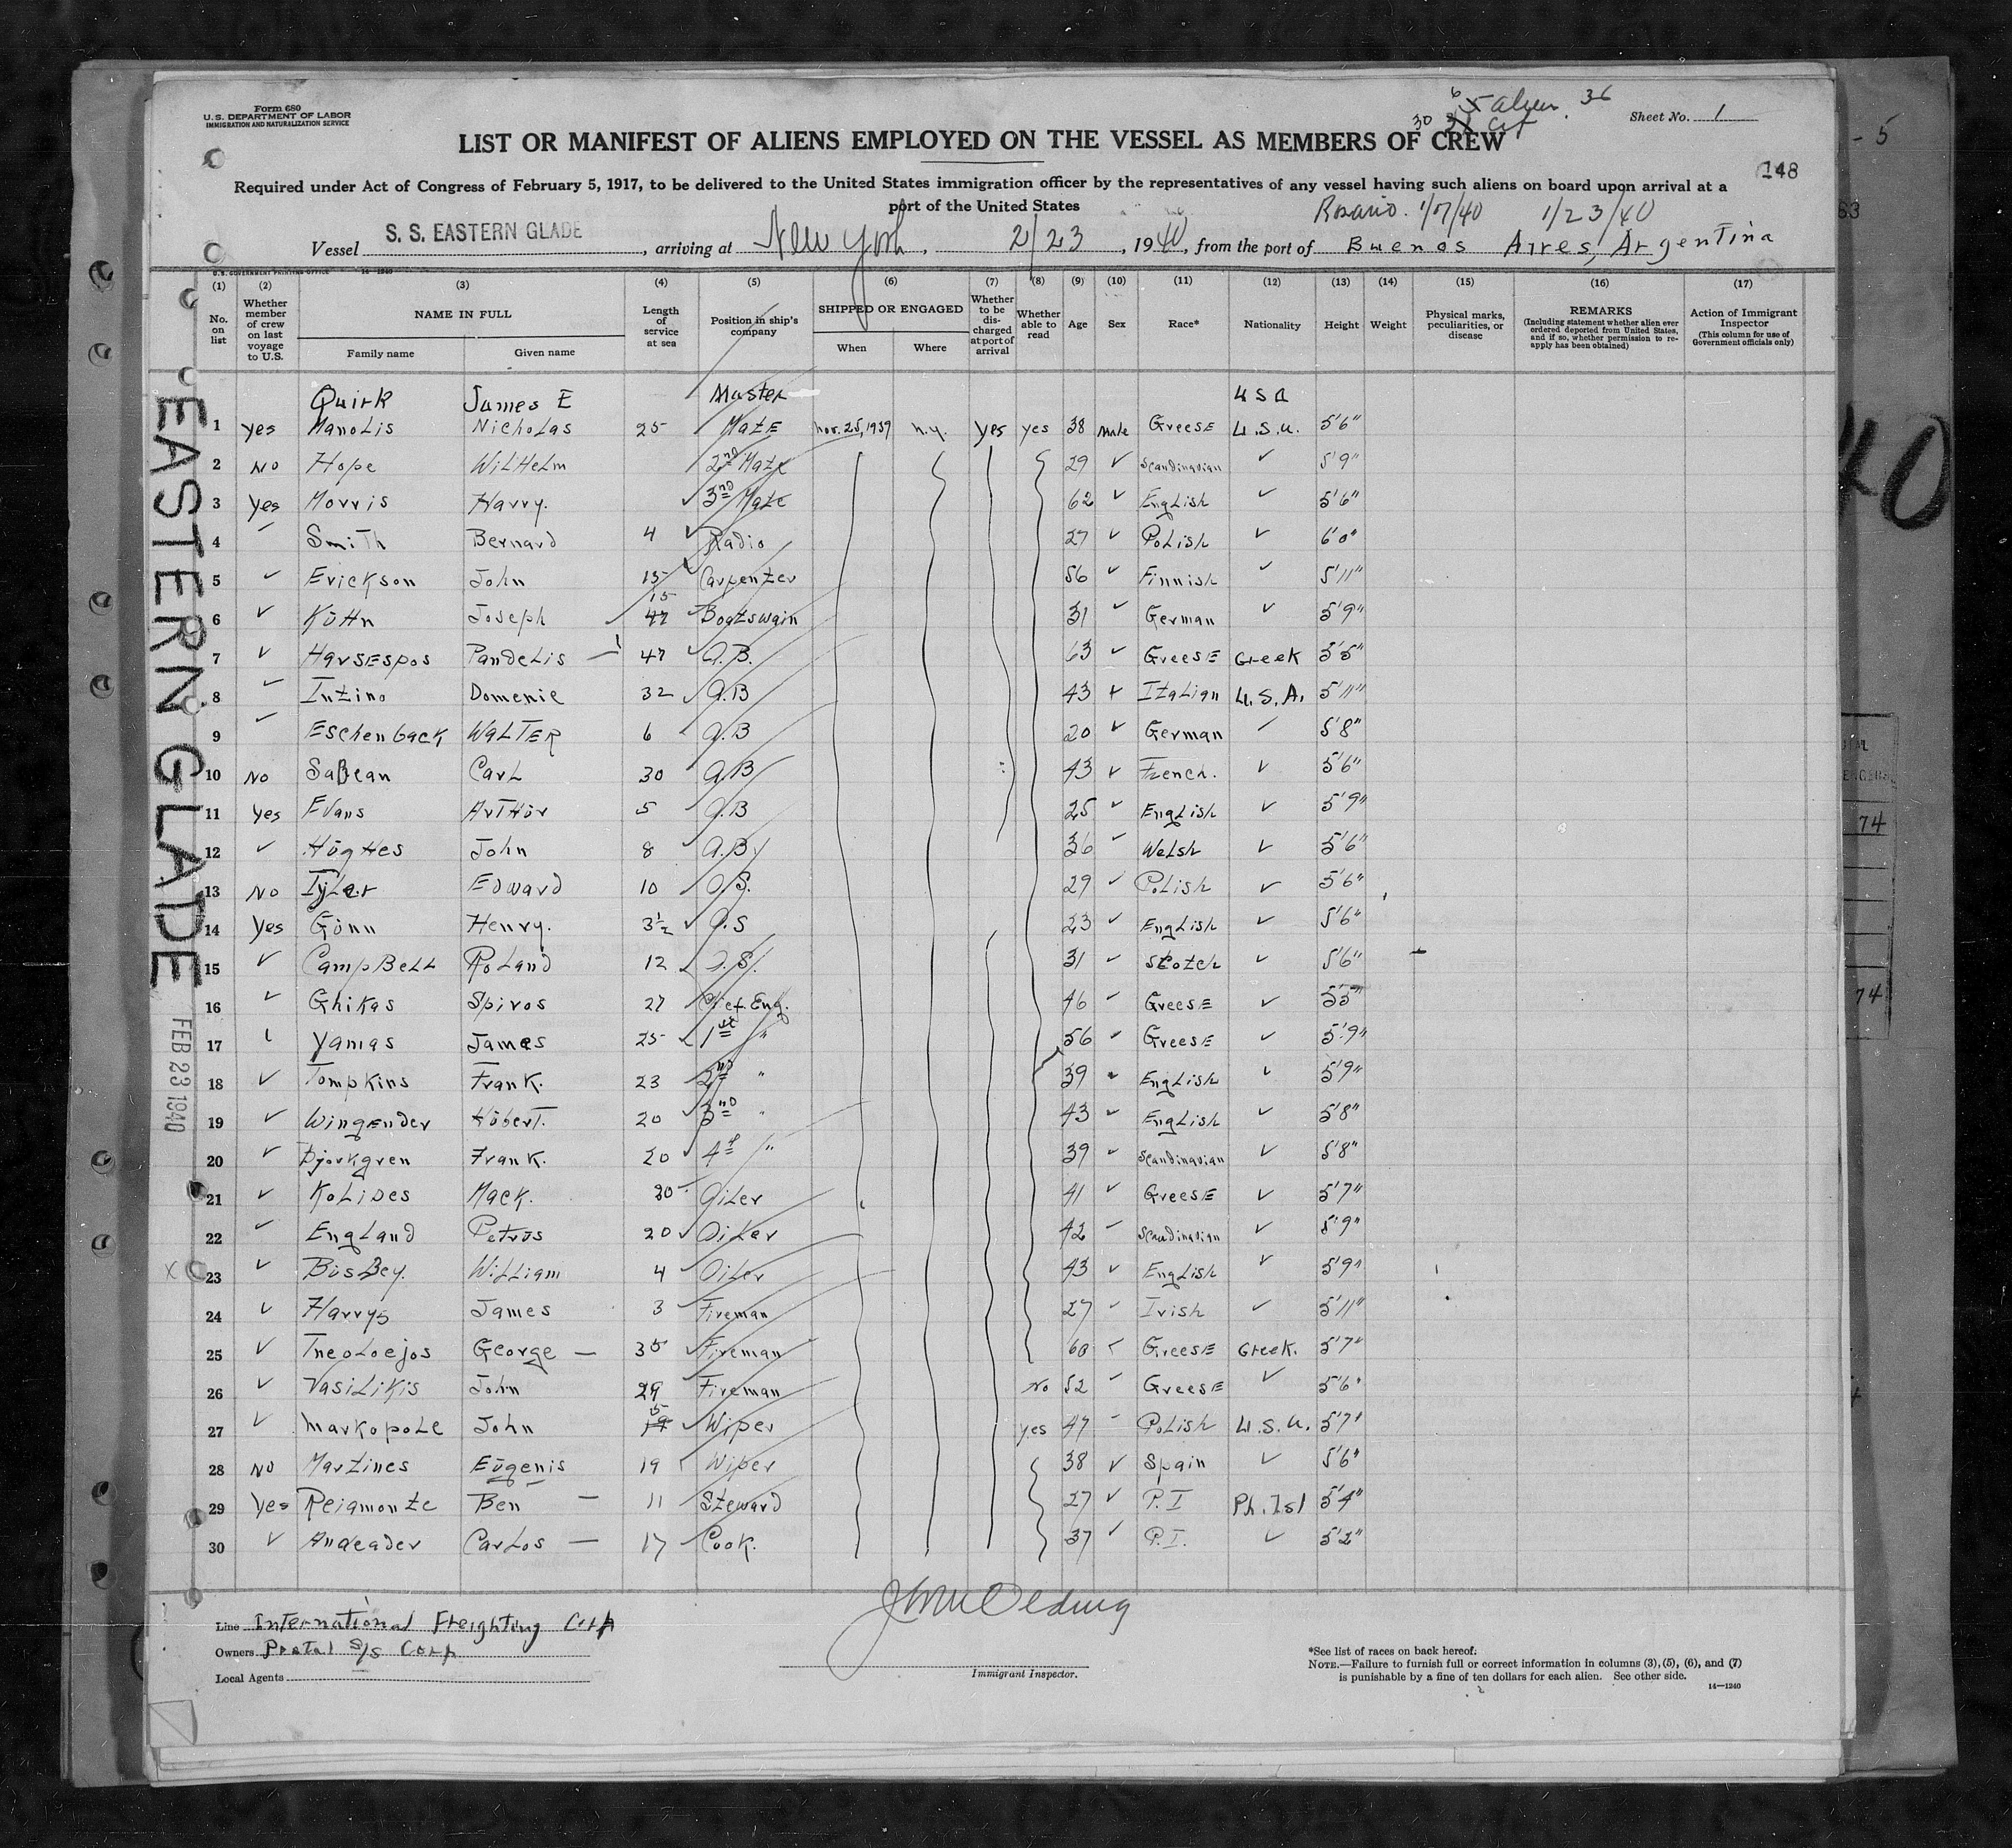 Form 680
U.S. DEPARTMENT OF LABOR
IMMIGRATION AND NATURALIZATION SERVICE
6 alien 36
30
Sheet No. 1
- 5
LIST OR MANIFEST OF ALIENS EMPLOYED ON THE VESSEL AS MEMBERS OF CREW
148
Required under Act of Congress of February 5, 1917, to be delivered to the United States immigration officer by the representatives of any vessel having such aliens on board upon arrival at a
port of the United States
Rosario. 1/7/40 1/23/40
Vessel S. S. EASTERN GLADE, arriving at New York, 2/23, 1940, from the port of Buenos Aires, Argentina
U.S. GOVERNMENT PRINTING OFFICE 14-1240
(1) (2) (3) (4) (5) (6) (7) (8) (9) (10) (11) (12) (13) (14) (15) (16) (17)
No. on list
Whether member of crew on last voyage to U.S.
NAME IN FULL
Family name Given name
Length of service at sea
Position in ship's company
SHIPPED OR ENGAGED
When Where
Whether to be discharged at port of arrival
Whether able to read
Age
Sex
Race*
Nationality
Height
Weight
Physical marks, peculiarities, or disease
REMARKS
(Including statement whether alien ever ordered deported from United States, and if so, whether permission to re-apply has been obtained)
Action of Immigrant Inspector
(This column for use of Government officials only)
Quirk James E Master USA
1 Yes Manolis Nicholas 25 Mate Nov. 25, 1939 N.Y. Yes yes 38 Male Greese U.S.A. 5'6"
2 No Hope Wilhelm 2nd Mate 29 ✓ Scandinavian ✓ 5'9"
3 Yes Morris Harry. ✓ 3nd Mate 62 ✓ English ✓ 5'6"
4 Smith Bernard 4 ✓ Radio 27 ✓ Polish ✓ 6'0"
5 ✓ Erickson John 15 ✓ Carpenter 56 ✓ Finnish ✓ 5'11"
6 ✓ Kühn Joseph 15 ✓ Boatswain 31 ✓ German ✓ 5'9"
7 ✓ Harsespos Pandelis — 47 ✓ A.B. 63 ✓ Greese Greek 5'5"
8 ✓ Intino Domenic 32 ✓ A.B 43 ✓ Italian U.S.A. 5'11"
9 ✓ Eschenback Walter 6 ✓ A.B 20 ✓ German ✓ 5'8"
10 No SaBean Carl 30 A.B 43 ✓ French. ✓ 5'6"
11 Yes Evans Arthur 5 A.B 25 ✓ English ✓ 5'9"
12 ✓ Hughes John 8 ✓ A.B 36 ✓ Welsh ✓ 5'6"
13 No Tyler Edward 10 ✓ O.S. 29 ✓ Polish ✓ 5'6"
14 Yes Gunn Henry. 3½ ✓ O.S 23 ✓ English ✓ 5'6"
15 ✓ Campbell Roland 12 ✓ O.S. 31 ✓ Scotch ✓ 5'6"
16 ✓ Ghikas Spiros 27 Chief Eng. 46 ✓ Greese ✓ 5'5"
17 Yamas James 25 ✓ 1st " 56 ✓ Greese ✓ 5'9"
18 ✓ Tompkins Frank. 23 2nd " 39 English ✓ 5'9"
19 ✓ Wingender Robert. 20 ✓ 3nd " 43 ✓ English ✓ 5'8"
20 ✓ Bjorkgren Frank. 20 ✓ 4th " 39 ✓ Scandinavian ✓ 5'8"
21 ✓ Kolides Mack. 30 Oiler 41 ✓ Greese ✓ 5'7"
22 ✓ England Petrus 20 ✓ Oiler 42 ✓ Scandinavian ✓ 5'9"
X 23 ✓ BusBey. William 4 ✓ Oiler 43 ✓ English ✓ 5'9"
24 ✓ Harrys James 3 ✓ Fireman 27 ✓ Irish ✓ 5'11"
25 ✓ Theoloejos George — 35 ✓ Fireman 60 ✓ Greese Greek. 5'7"
26 ✓ Vasilikis John 29 Fireman No 52 ✓ Greese ✓ 5'6"
27 ✓ Markopole John ✓ Wiper yes 47 Polish U.S.A. 5'7"
28 No Martines Eugenis 19 ✓ Wiper 38 ✓ Spain ✓ 5'6"
29 Yes Reigmonte Ben — 11 Steward 27 ✓ P.I Ph. Isl 5'4"
30 ✓ Andeader Carlos — 17 ✓ Cook. 37 ✓ P.I. ✓ 5'2"
EASTERN GLADE
FEB 23 1940
40
74
74
Line International Freighting Corp
Owners Postal S/S Corp
Local Agents
Immigrant Inspector.
*See list of races on back hereof.
NOTE.—Failure to furnish full or correct information in columns (3), (5), (6), and (7)
is punishable by a fine of ten dollars for each alien. See other side.
14—1240